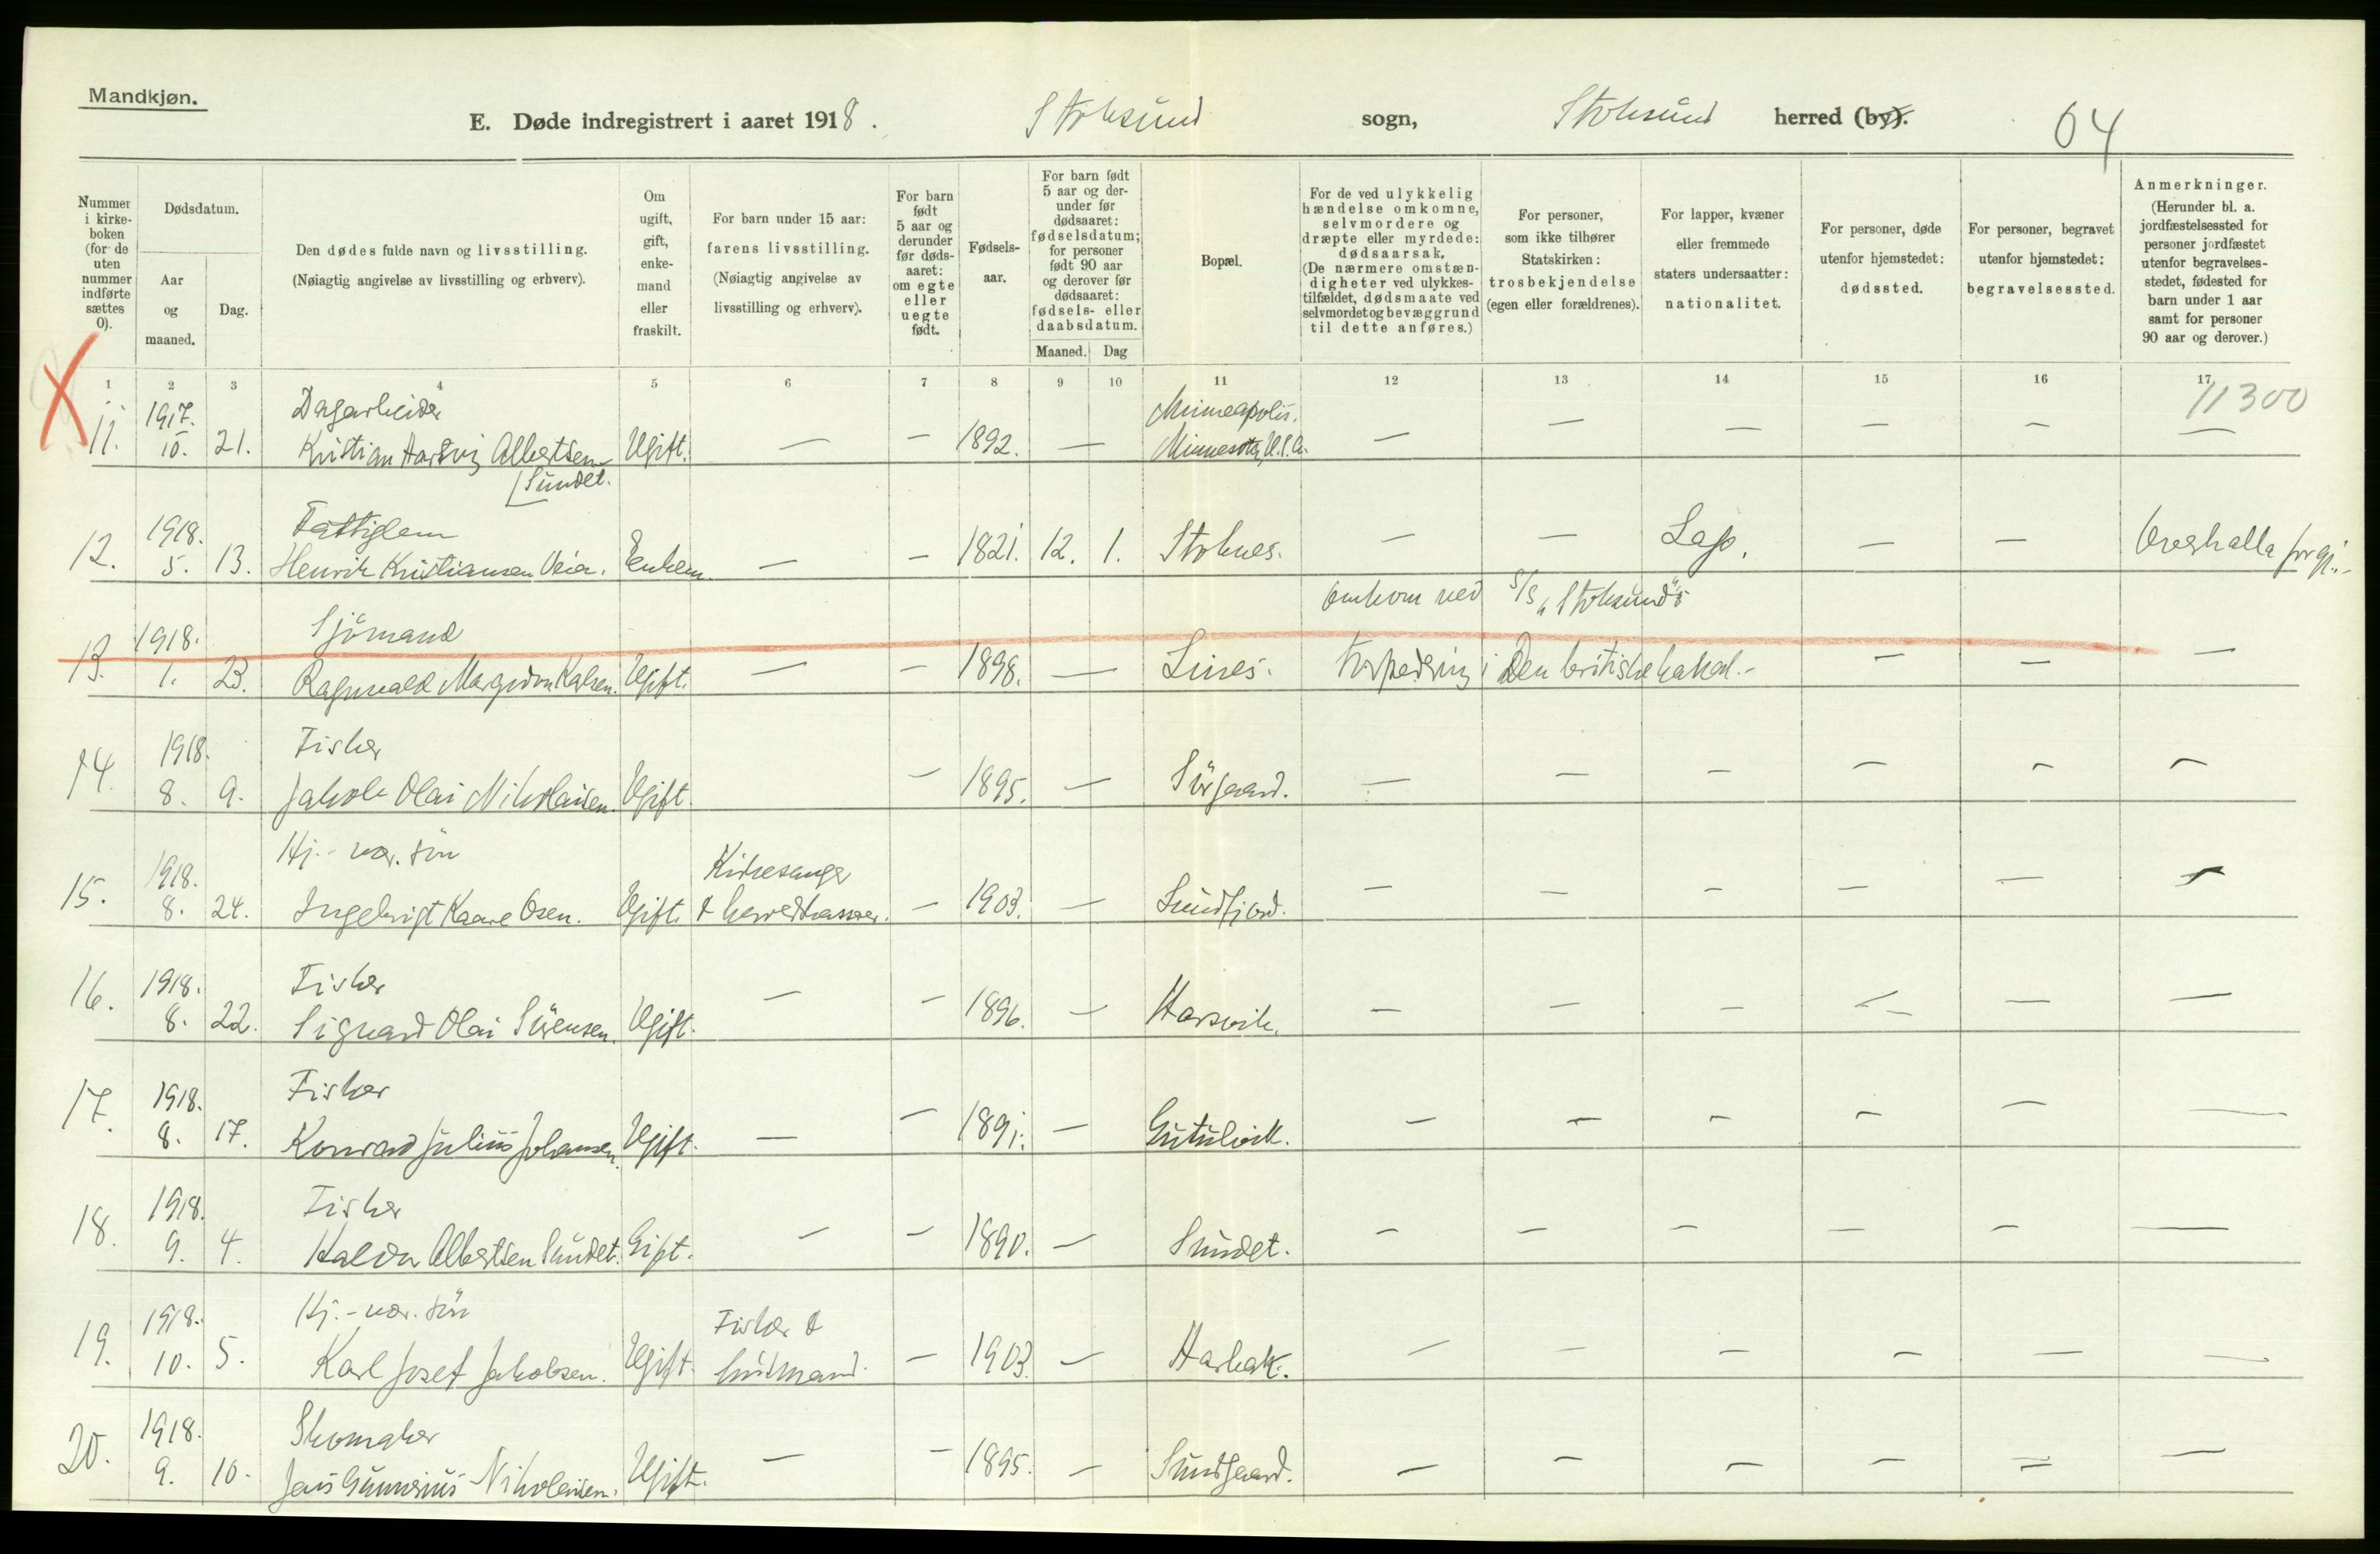 Mandkjøn.
E. Døde indregistrert i aaret 1918. Stoksund sogn, Stoksund herred (by). 64
Nummer i kirke-boken (for de uten nummer indførte sættes 0).
Dødsdatum.
Aar og maaned.
Dag.
Den dødes fulde navn og livsstilling.
(Nøiagtig angivelse av livsstilling og erhverv).
Om ugift, gift, enke-mand eller fraskilt.
For barn under 15 aar: farens livsstilling.
(Nøiagtig angivelse av livsstilling og erhverv).
For barn født 5 aar og derunder før døds-aaret: om egte eller uegte født.
Fødsels-aar.
For barn født 5 aar og der-under før dødsaaret: fødselsdatum; for personer født 90 aar og derover før dødsaaret: fødsels- eller daabsdatum.
Maaned. Dag
Bopæl.
For de ved ulykkelig hændelse omkomne, selvmordere og dræpte eller myrdede: dødsaarsak.
(De nærmere omstæn-digheter ved ulykkes-tilfældet, dødsmaate ved selvmordet og bevæggrund til dette anføres.)
For personer, som ikke tilhører Statskirken: trosbekjendelse (egen eller forældrenes).
For lapper, kvæner eller fremmede staters undersaatter: nationalitet.
For personer, døde utenfor hjemstedet: dødssted.
For personer, begravet utenfor hjemstedet: begravelsessted.
Anmerkninger.
(Herunder bl. a. jordfæstelsessted for personer jordfæstet utenfor begravelses-stedet, fødested for barn under 1 aar samt for personer 90 aar og derover.)
1 2 3 4 5 6 7 8 9 10 11 12 13 14 15 16 17
11300
1917. Dagarbeider Minneapolis.
11. 10. 21. Kristian Hartvig Albertsen Ugift. — — 1892. — Minnesota, U.S.A. — — — — — —
Sundet.
1918. Fattiglem
12. 5. 13. Henrik Kristiansen Veia. Enkem. — — 1821. 12. 1. Stoknes. — — Lap. — — Overhalla prgj.
omkom ved S/S „Stoksund"s
1918. Sjömand
13. 1. 23. Ragnvald Margido Karlsen. Ugift. — — 1898. — Lines. torpedering i Den britiske kanal. — — —
1918. Fisker
14. 8. 9. Jakob Olai Nikolaisen. Ugift. — 1895. — Sörgaard. — — — — — —
1918. Hj.-vær. sön Kirkesanger
15. 8. 24. Ingebrigt Kaare Osen. Ugift. & herredskasser. — 1903. — Sundfjord. — — — — — —
1918. Fisker
16. 8. 22. Sigvard Olai Sörensen. Ugift. — — 1896. — Harsvik. — — — — — —
1918. Fisker
17. 8. 17. Konrad Julius Johansen. Ugift. — — 1891. — Gutulvik. — — — — — —
1918. Fisker
18. 9. 4. Haldor Albertsen Sundet. Gift. — — 1890. — Sundet. — — — — — —
1918. Hj.-vær. sön Fisker &
19. 10. 5. Karl Josef Jakobsen. Ugift. husmand. — 1903. — Harbak. — — — — — —
1918. Skomaker
20. 9. 10. Jens Gunnerius Nikolaisen. Ugift. — — 1895. — Sundgaard. — — — — — —